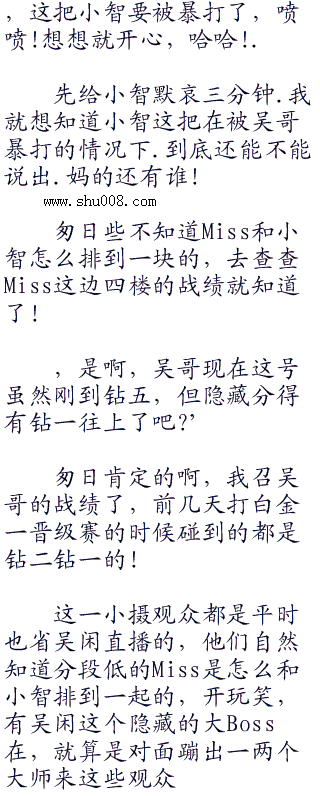 ，这把小智要被暴打了，喷
喷！想想就开心，哈哈！.
先给小智默哀三分钟．我
就想知道小智这把在被吴哥
暴打的情况下．到底还能不能
说出．妈的还有谁！
www.shu008.com
匆日些不知道Miss和小
智怎么排到一块的，去查查
Miss这边四楼的战绩就知道
了！
，是啊，吴哥现在这号
虽然刚到钻五，但隐藏分得
有钻一往上了吧?’
匆日肯定的啊，我召吴
哥的战绩了，前几天打白金
一晋级赛的时候碰到的都是
钻二钻一的！
这一小摄观众都是平时
也省吴闲直播的，他们自然
知道分段低的Miss是怎么和
小智排到一起的，开玩笑，
有吴闲这个隐藏的大Boss
在，就算是对面蹦出一两个
大师来这些观众